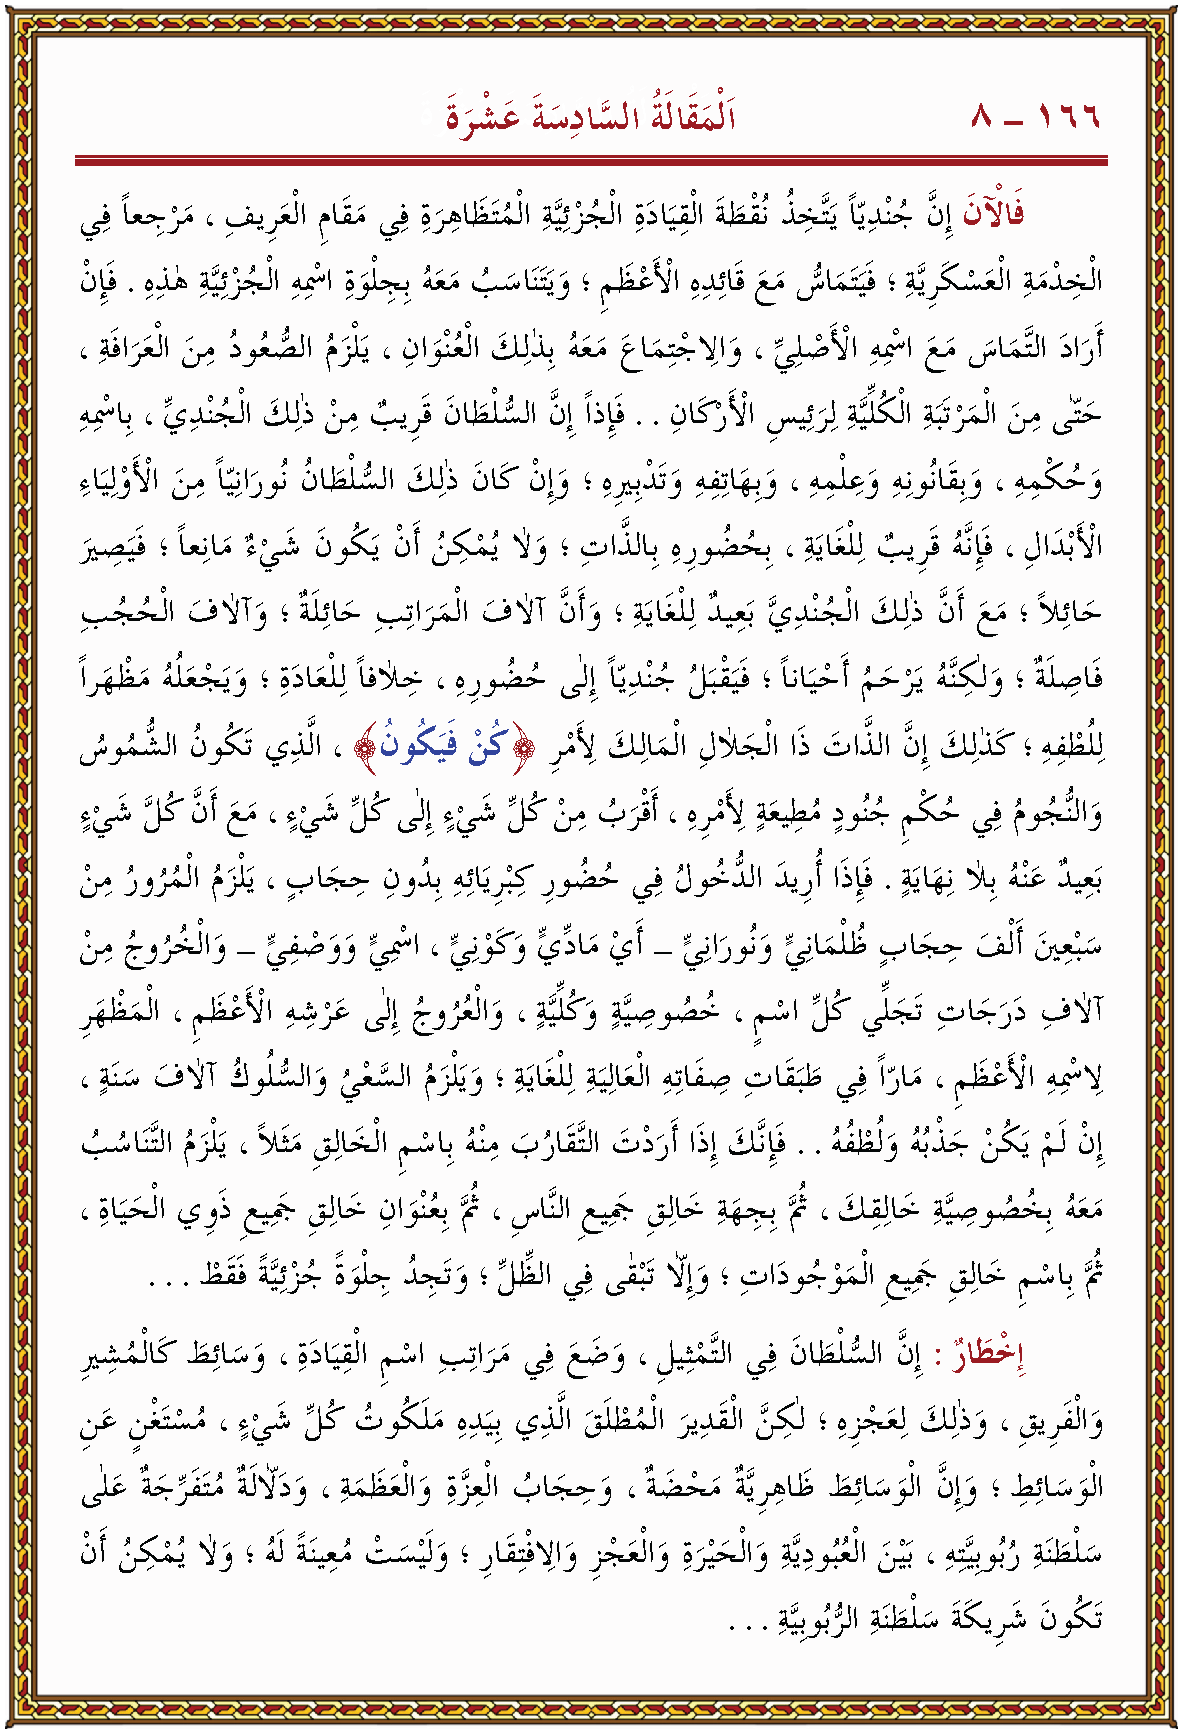 ١٦٦ – ٨ اَلْمَقَالَةُ السَّادِسَةَ عَشْرَةَ
فَاْلآنَ إِنَّ جُنْدِيّاً يَتَّخِذُ نُقْطَةَ الْقِيَادَةِ الْجُزْئِيَّةِ الْمُتَظَاهِرَةِ فِي مَقَامِ الْعَرِيفِ ، مَرْجِعاً فِي
الْخِدْمَةِ الْعَسْكَرِيَّةِ ؛ فَيَتَمَاسُّ مَعَ قَائِدِهِ اْلأَعْظَمِ ؛ وَيَتَنَاسَبُ مَعَهُ بِجِلْوَةِ اسْمِهِ الْجُزْئِيَّةِ هٰذِهِ . فَإِنْ
أَرَادَ التَّمَاسَ مَعَ اسْمِهِ اْلأَصْلِيِّ ، وَاْلاِجْتِمَاعَ مَعَهُ بِذٰلِكَ الْعُنْوَانِ ، يَلْزَمُ الصُّعُودُ مِنَ الْعَرَافَةِ ،
حَتّٰى مِنَ الْمَرْتَبَةِ الْكُلِّيَّةِ لِرَئِيسِ اْلأَرْكَانِ . . فَإِذاً إِنَّ السُّلْطَانَ قَرِيبٌ مِنْ ذٰلِكَ الْجُنْدِيِّ ، بِاسْمِهِ
وَحُكْمِهِ ، وَبِقَانُونِهِ وَعِلْمِهِ ، وَبِهَاتِفِهِ وَتَدْبِيرِهِ ؛ وَإِنْ كَانَ ذٰلِكَ السُّلْطَانُ نُورَانِيّاً مِنَ اْلأَوْلِيَاءِ
اْلأَبْدَالِ ، فَإِنَّهُ قَرِيبٌ لِلْغَايَةِ ، بِحُضُورِهِ بِالذَّاتِ ؛ وَلاٰ يُمْكِنُ أَنْ يَكُونَ شَيْءٌ مَانِعاً ؛ فَيَصِيرَ
حَائِلاً ؛ مَعَ أَنَّ ذٰلِكَ الْجُنْدِيَّ بَعِيدٌ لِلْغَايَةِ ؛ وَأَنَّ آلاٰفَ الْمَرَاتِبِ حَائِلَةٌ ؛ وَآلاٰفَ الْحُجُبِ
فَاصِلَةٌ ؛ وَلٰكِنَّهُ يَرْحَمُ أَحْيَاناً ؛ فَيَقْبَلُ جُنْدِيّاً إِلٰى حُضُورِهِ ، خِلاٰفاً لِلْعَادَةِ ؛ وَيَجْعَلُهُ مَظْهَراً
لِلُطْفِهِ ؛ كَذٰلِكَ إِنَّ الذَّاتَ ذَا الْجَلاٰلِ الْمَالِكَ لِأَمْرِ ﴿كُنْ فَيَكُونُ﴾ ، الَّذِي تَكُونُ الشُّمُوسُ
وَالنُّجُومُ فِي حُكْمِ جُنُودٍ مُطِيعَةٍ لِأَمْرِهِ ، أَقْرَبُ مِنْ كُلِّ شَيْءٍ إِلٰى كُلِّ شَيْءٍ ، مَعَ أَنَّ كُلَّ شَيْءٍ
بَعِيدٌ عَنْهُ بِلاٰ نِهَايَةٍ . فَإِذَا أُرِيدَ الدُّخُولُ فِي حُضُورِ كِبْرِيَائِهِ بِدُونِ حِجَابٍ ، يَلْزَمُ الْمُرُورُ مِنْ
سَبْعِينَ أَلْفَ حِجَابٍ ظُلْمَانِيٍّ وَنُورَانِيٍّ – أَيْ مَادِّيٍّ وَكَوْنِيٍّ ، اسْمِيٍّ وَوَصْفِيٍّ – وَالْخُرُوجُ مِنْ
آلاٰفِ دَرَجَاتِ تَجَلِّي كُلِّ اسْمٍ ، خُصُوصِيَّةٍ وَكُلِّيَّةٍ ، وَالْعُرُوجُ إِلٰى عَرْشِهِ اْلأَعْظَمِ ، الْمَظْهَرِ
لِاسْمِهِ اْلأَعْظَمِ ، مَارّاً فِي طَبَقَاتِ صِفَاتِهِ الْعَالِيَةِ لِلْغَايَةِ ؛ وَيَلْزَمُ السَّعْيُ وَالسُّلُوكُ آلاٰفَ سَنَةٍ ،
إِنْ لَمْ يَكُنْ جَذْبُهُ وَلُطْفُهُ . . فَإِنَّكَ إِذَا أَرَدْتَ التَّقَارُبَ مِنْهُ بِاسْمِ الْخَالِقِ مَثَلاً ، يَلْزَمُ التَّنَاسُبُ
مَعَهُ بِخُصُوصِيَّةِ خَالِقِكَ ، ثُمَّ بِجِهَةِ خَالِقِ جَمِيعِ النَّاسِ ، ثُمَّ بِعُنْوَانِ خَالِقِ جَمِيعِ ذَوِي الْحَيَاةِ ،
ثُمَّ بِاسْمِ خَالِقِ جَمِيعِ الْمَوْجُودَاتِ ؛ وَإِلاّٰ تَبْقٰى فِي الظِّلِّ ؛ وَتَجِدُ جِلْوَةً جُزْئِيَّةً فَقَطْ . . .
إِخْطَارٌ : إِنَّ السُّلْطَانَ فِي التَّمْثِيلِ ، وَضَعَ فِي مَرَاتِبِ اسْمِ الْقِيَادَةِ ، وَسَائِطَ كَالْمُشِيرِ
وَالْفَرِيقِ ، وَذٰلِكَ لِعَجْزِهِ ؛ لٰكِنَّ الْقَدِيرَ الْمُطْلَقَ الَّذِي بِيَدِهِ مَلَكُوتُ كُلِّ شَيْءٍ ، مُسْتَغْنٍ عَنِ
الْوَسَائِطِ ؛ وَإِنَّ الْوَسَائِطَ ظَاهِرِيَّةٌ مَحْضَةٌ ، وَحِجَابُ الْعِزَّةِ وَالْعَظَمَةِ ، وَدَلاّٰلَةٌ مُتَفَرِّجَةٌ عَلٰى
سَلْطَنَةِ رُبُوبِيَّتِهِ ، بَيْنَ الْعُبُودِيَّةِ وَالْحَيْرَةِ وَالْعَجْزِ وَاْلاِفْتِقَارِ ؛ وَلَيْسَتْ مُعِينَةً لَهُ ؛ وَلاٰ يُمْكِنُ أَنْ
تَكُونَ شَرِيكَةَ سَلْطَنَةِ الرُّبُوبِيَّةِ . . .